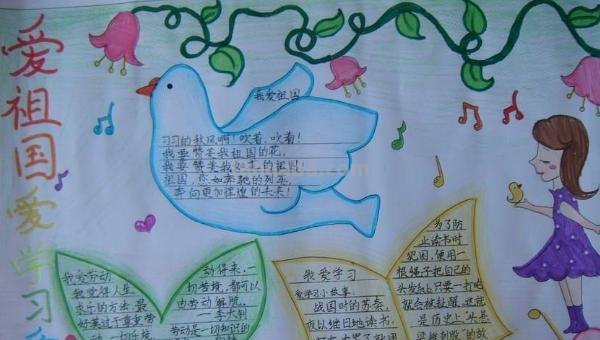 爱祖国爱学习
我爱祖国
习习的秋风啊！吹着，吹着！
我要赞美我祖国的花，
我要赞美我如花的祖国！
祖国，恋如奔驰的列车，
奔向更加辉煌的未来！
我爱劳动
我觉得人生
求乐的方法，最
好莫过于尊重劳
动，一切乐境，
动得来，一
切苦境，都可以
由劳动解脱。
—李大钊
劳动是一切知识的
我爱学习
爱学习小故事
战国时的苏秦，
夜以继日地读书，
为了防
止读书时
犯困，便用一
根绳子把自己的
头发
只要一打盹
就会被扯醒，这就
是历史上"头悬
梁锥刺股"的故